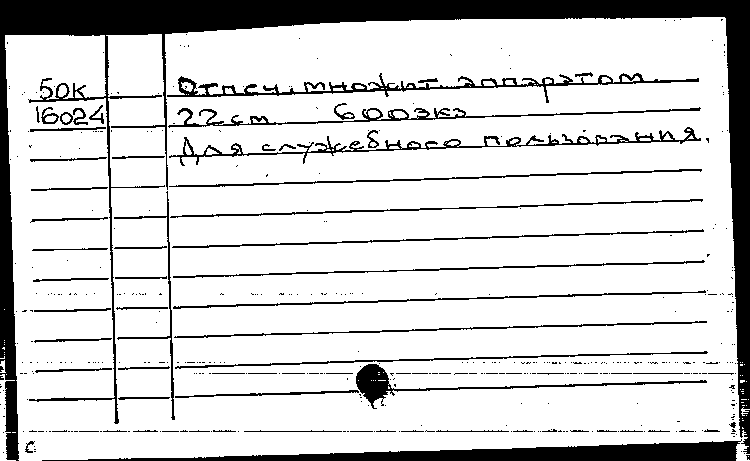 50к Отпеч. множит. аппаратом.
16024 22см 600экз
Для служебного пользования.
с